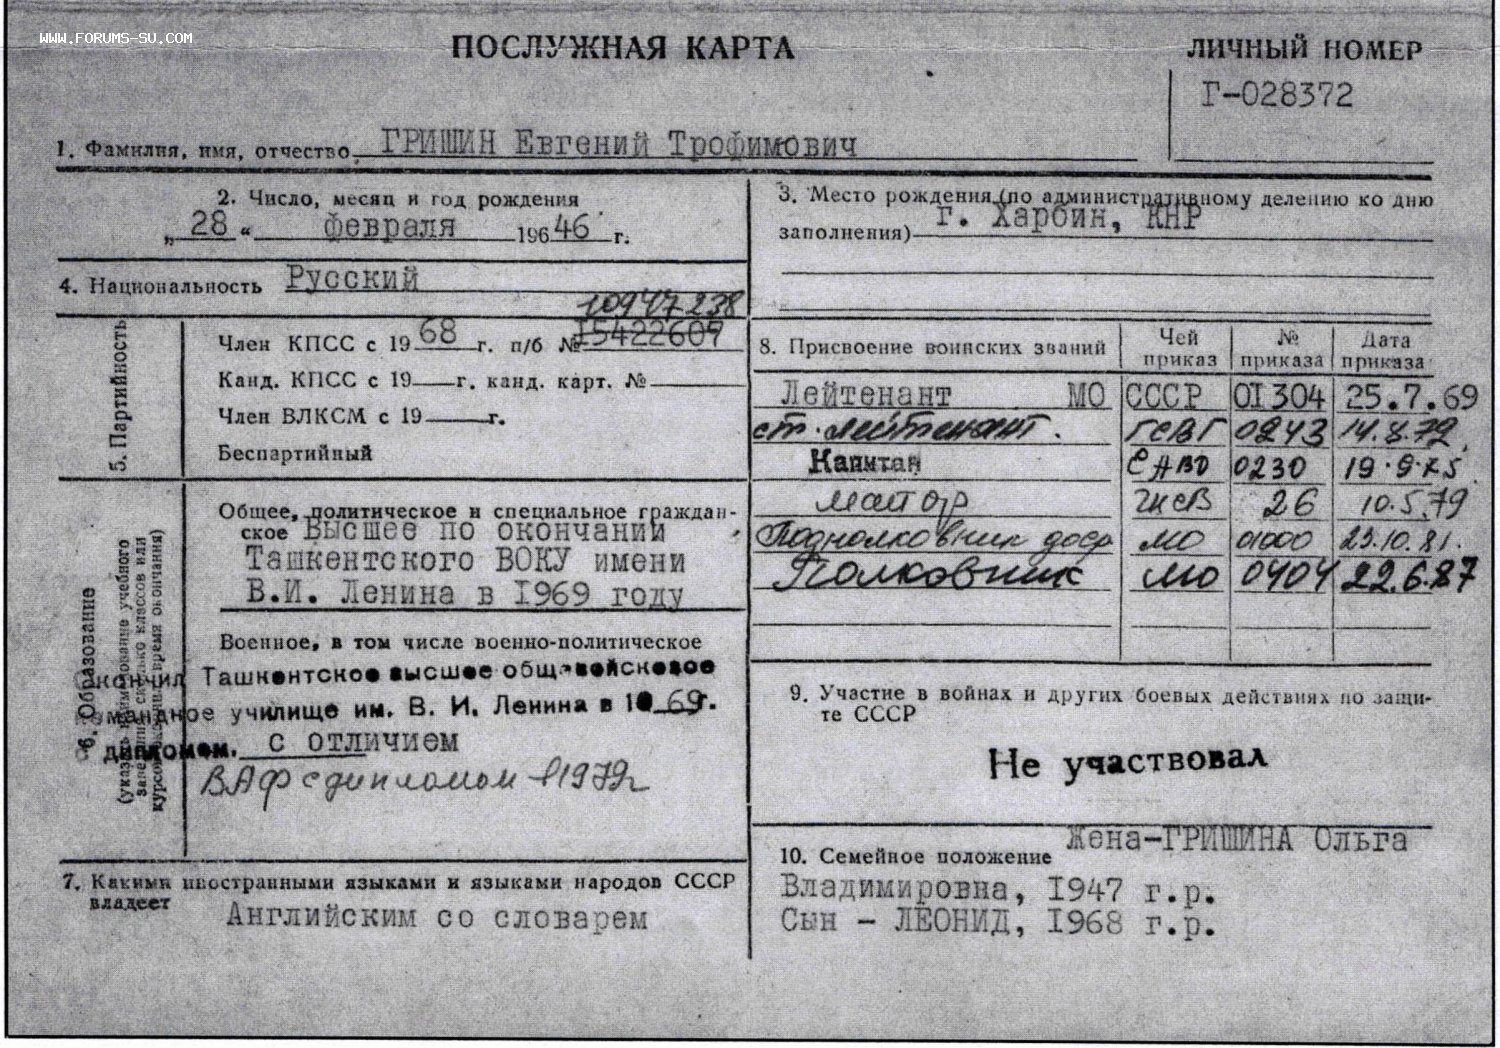 WWW.FORUMS-SU.COM
ПОСЛУЖНАЯ КАРТА
ЛИЧНЫЙ НОМЕР
Г-028372
1. Фамилия, имя, отчество ГРИШИН Евгений Трофимович
2. Число, месяц и год рождения
„28“ февраля 196 46 г.
3. Место рождения (по административному делению ко дню
заполнения) г. Харбин, КНР
4. Национальность Русский
5. Партийность
10947238
Член КПСС с 1968 г. п/б № I5422607
Канд. КПСС с 19 г. канд. карт. №
Член ВЛКСМ с 19 г.
Беспартийный
6. Образование
(указать наименование учебного
заведения, сколько классов или
курсов, время окончания)
Общее, политическое и специальное граждан-
ское Высшее по окончании
Ташкентского ВОКУ имени
В.И. Ленина в I969 году
Военное, в том числе военно-политическое
Окончил Ташкентское высшее общевойсковое
командное училище им. В. И. Ленина в 1969 г.
с дипломом. с отличием
ВАФ с дипломом в 1979г
7. Какими иностранными языками и языками народов СССР
владеет
Английским со словарем
8. Присвоение воинских званий Чей приказ № приказа Дата приказа
Лейтенант МО СССР 0I304 25.7.69
ст. лейтенант. ГСВГ 0243 14.8.72
Капитан САВО 0230 19.9.75
майор ГКСВ 26 10.5.79
Подполковник доср МО 01000 23.10.81.
Полковник МО 0404 22.6.87
9. Участие в войнах и других боевых действиях по защи-
те СССР
Не участвовал
10. Семейное положение Жена-ГРИШИНА Ольга
Владимировна, I947 г.р.
Сын - ЛЕОНИД, I968 г.р.